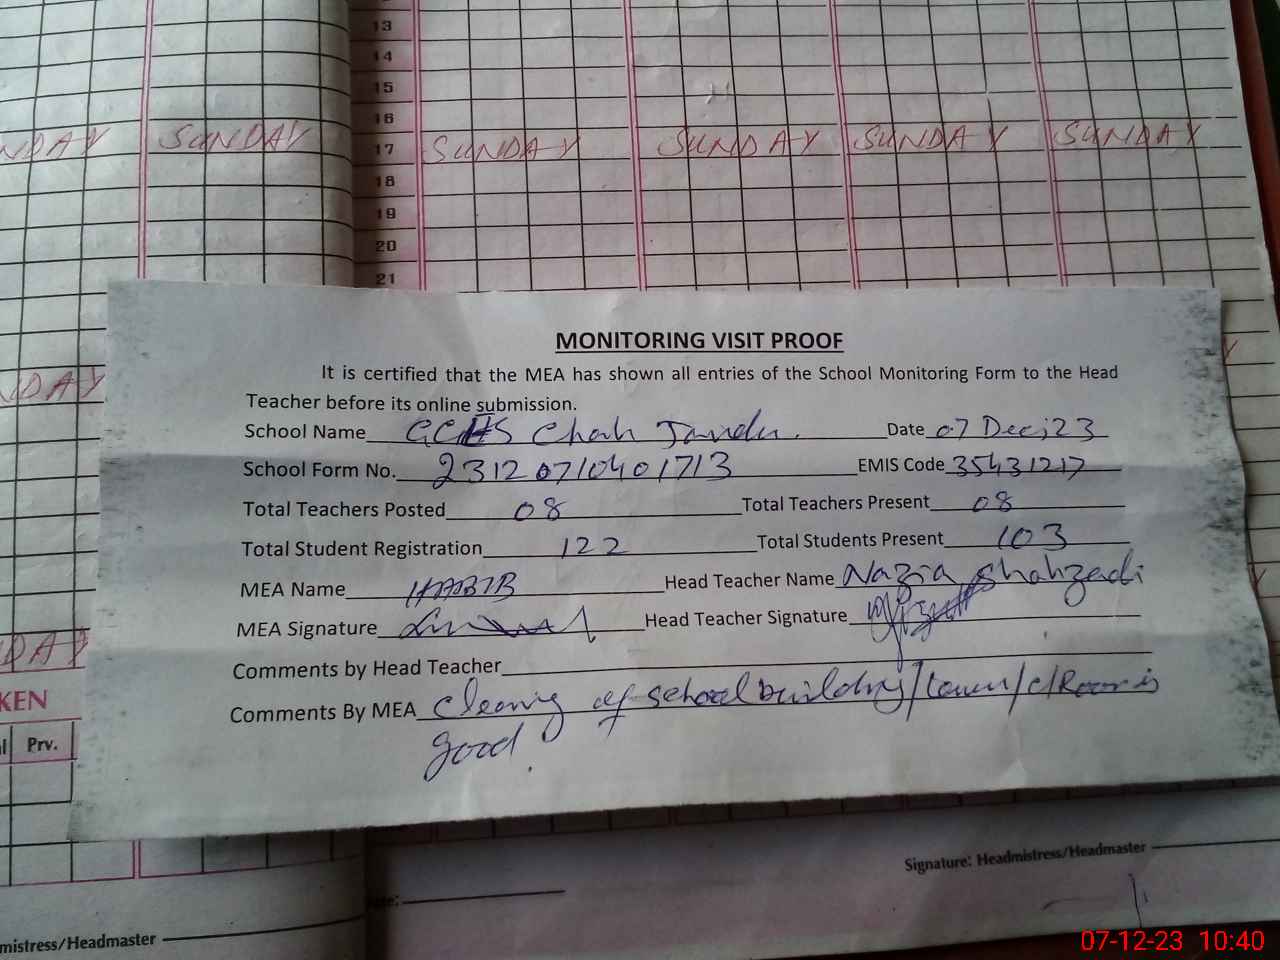 13
14
15
16
NDAY SUNDAY 17 SUNDAY SUNDAY SUNDAY SUNDAY
18
19
20
21
NDAY
MONITORING VISIT PROOF
It is certified that the MEA has shown all entries of the School Monitoring Form to the Head
Teacher before its online submission.
School Name GCHS Chah Jandu. Date 07 Dec, 23
School Form No. 2312071040 1713 EMIS Code 35431217
Total Teachers Posted 08 Total Teachers Present 08
Total Student Registration 122 Total Students Present 103
MEA Name HABIB Head Teacher Name Nazia Shahzadi
MEA Signature Head Teacher Signature
Comments by Head Teacher
Comments By MEA Cleaning of school building/Lawn/C/Room is
good.
DAY
KEN
l Prv.
Signature: Headmistress/Headmaster
mistress/Headmaster
07-12-23 10:40